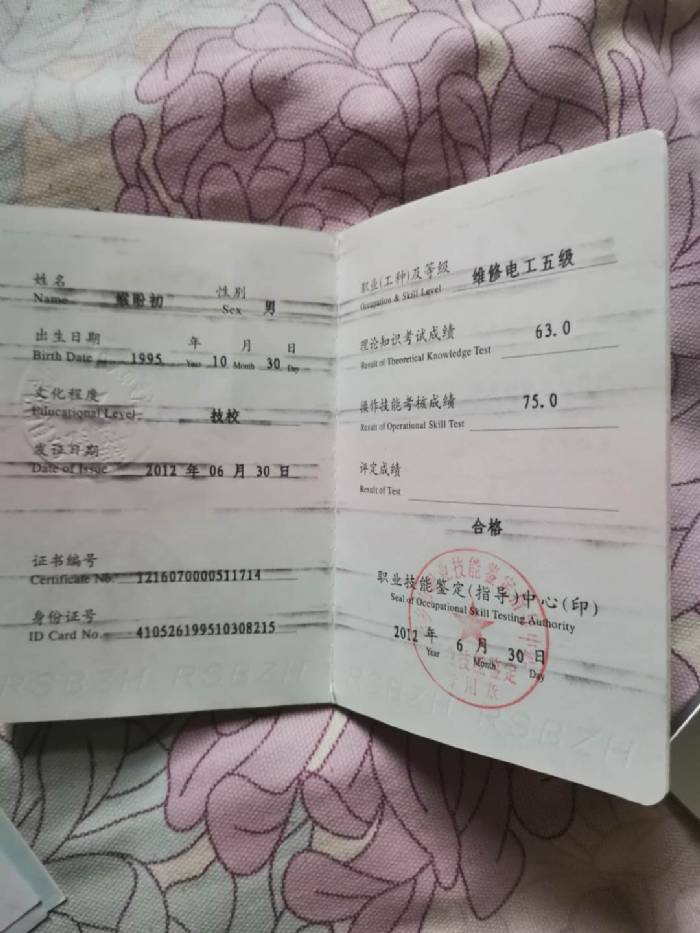 姓名 性别
Name 盼初 Sex 男
出生日期 年 月 日
Birth Date 1995 Year 10 Month 30 Day
文化程度
Educational Level 技校
发证日期
Date of Issue 2012 年 06 月 30 日
证书编号
Certificate No. 1216070000511714
身份证号
ID Card No. 410526199510308215
RSBZH RSBZH
职业(工种)及等级 维修电工五级
Occupation & Skill Level
理论知识考试成绩 63.0
Result of Theoretical Knowledge Test
操作技能考核成绩 75.0
Result of Operational Skill Test
评定成绩
Result of Test
合格
职业技能鉴定(指导)中心(印)
Seal of Occupational Skill Testing Authority
2012 年 6 月 30 日
Year Month Day
技能鉴定
专用章
RSBZH